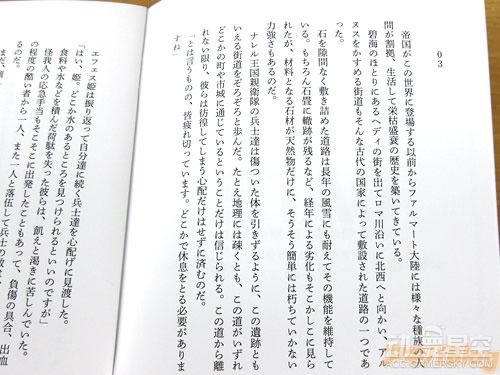 03
帝国がこの世界に登場する以前からファルマート大陸には様々な種族の人
間が割拠、生活して栄枯盛衰の歴史を築いてきている。
碧海のほとりにあるヘディの街を出てロマ川沿いに北西へと向かい、
ヌスをかすめる街道もそんな古代の国家によって敷設された道路の一つであ
った。
石を隙間なく敷き詰めた道路は長年の風雪にも耐えてその機能を維持して
いる。もちろん石畳に轍跡が残るなど、経年による劣化もそこかしこに見ら
れたが、材料となる石材が天然物だけに、そうそう簡単には朽ちていかない
力強さもあるのだ。
ナレル王国親衛隊の兵士達は傷ついた体を引きずるように、この遺跡とも
いえる街道をぞろぞろと歩んだ。たとえ地理には疎くとも、この道がいずれ
どこかの町や市城に通じているということだけは信じられる。この道から離
れない限り、彼らは彷徨してしまう心配だけはせずに済むのだ。
「とは言うものの、皆疲れ切っています。どこかで休息をとる必要がありま
すね」
エフェス姫は振り返って自分達に続く兵士達を心配げに見渡した。
「はい、姫。どこか水のあるところを見つけられるといいのですが」
食料や水などを積んだ荷駄を失った彼らは、飢えと渇きに苦しんでいた。
怪我人の応急手当もそこそこに出発したこともあって、負傷の具合、出血
の程度の酷い者から一人、また一人と落伍して兵士の数は
るのだ。
ACG.GAMERSKY.COM